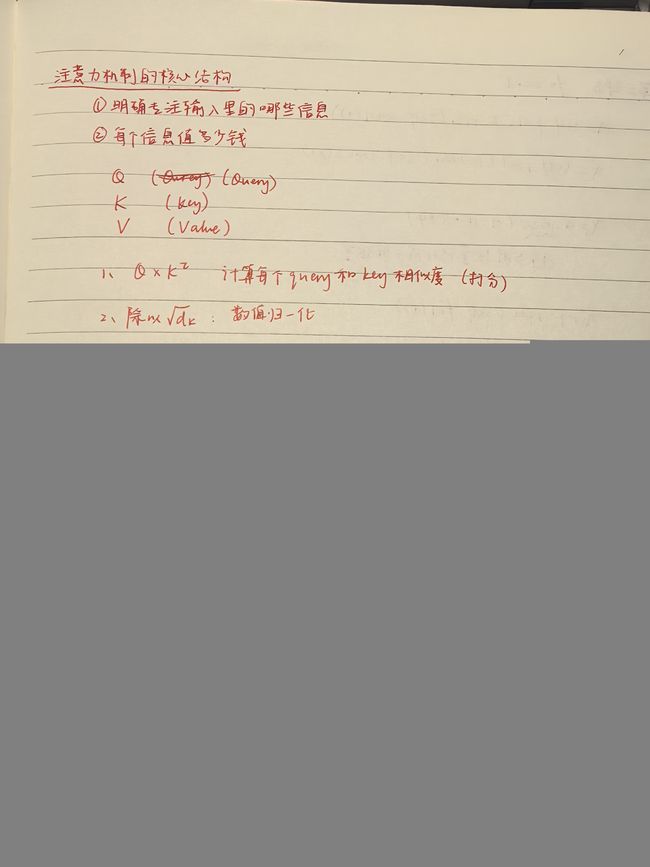 注意力机制的核心结构
① 明确专注输入里的哪些信息
② 每个信息值多少钱
Q (Query)
K (key)
V (Value)
1、 Q × K^T 计算每个query和key相似度 (打分)
2、 除以 √dk : 数值归一化